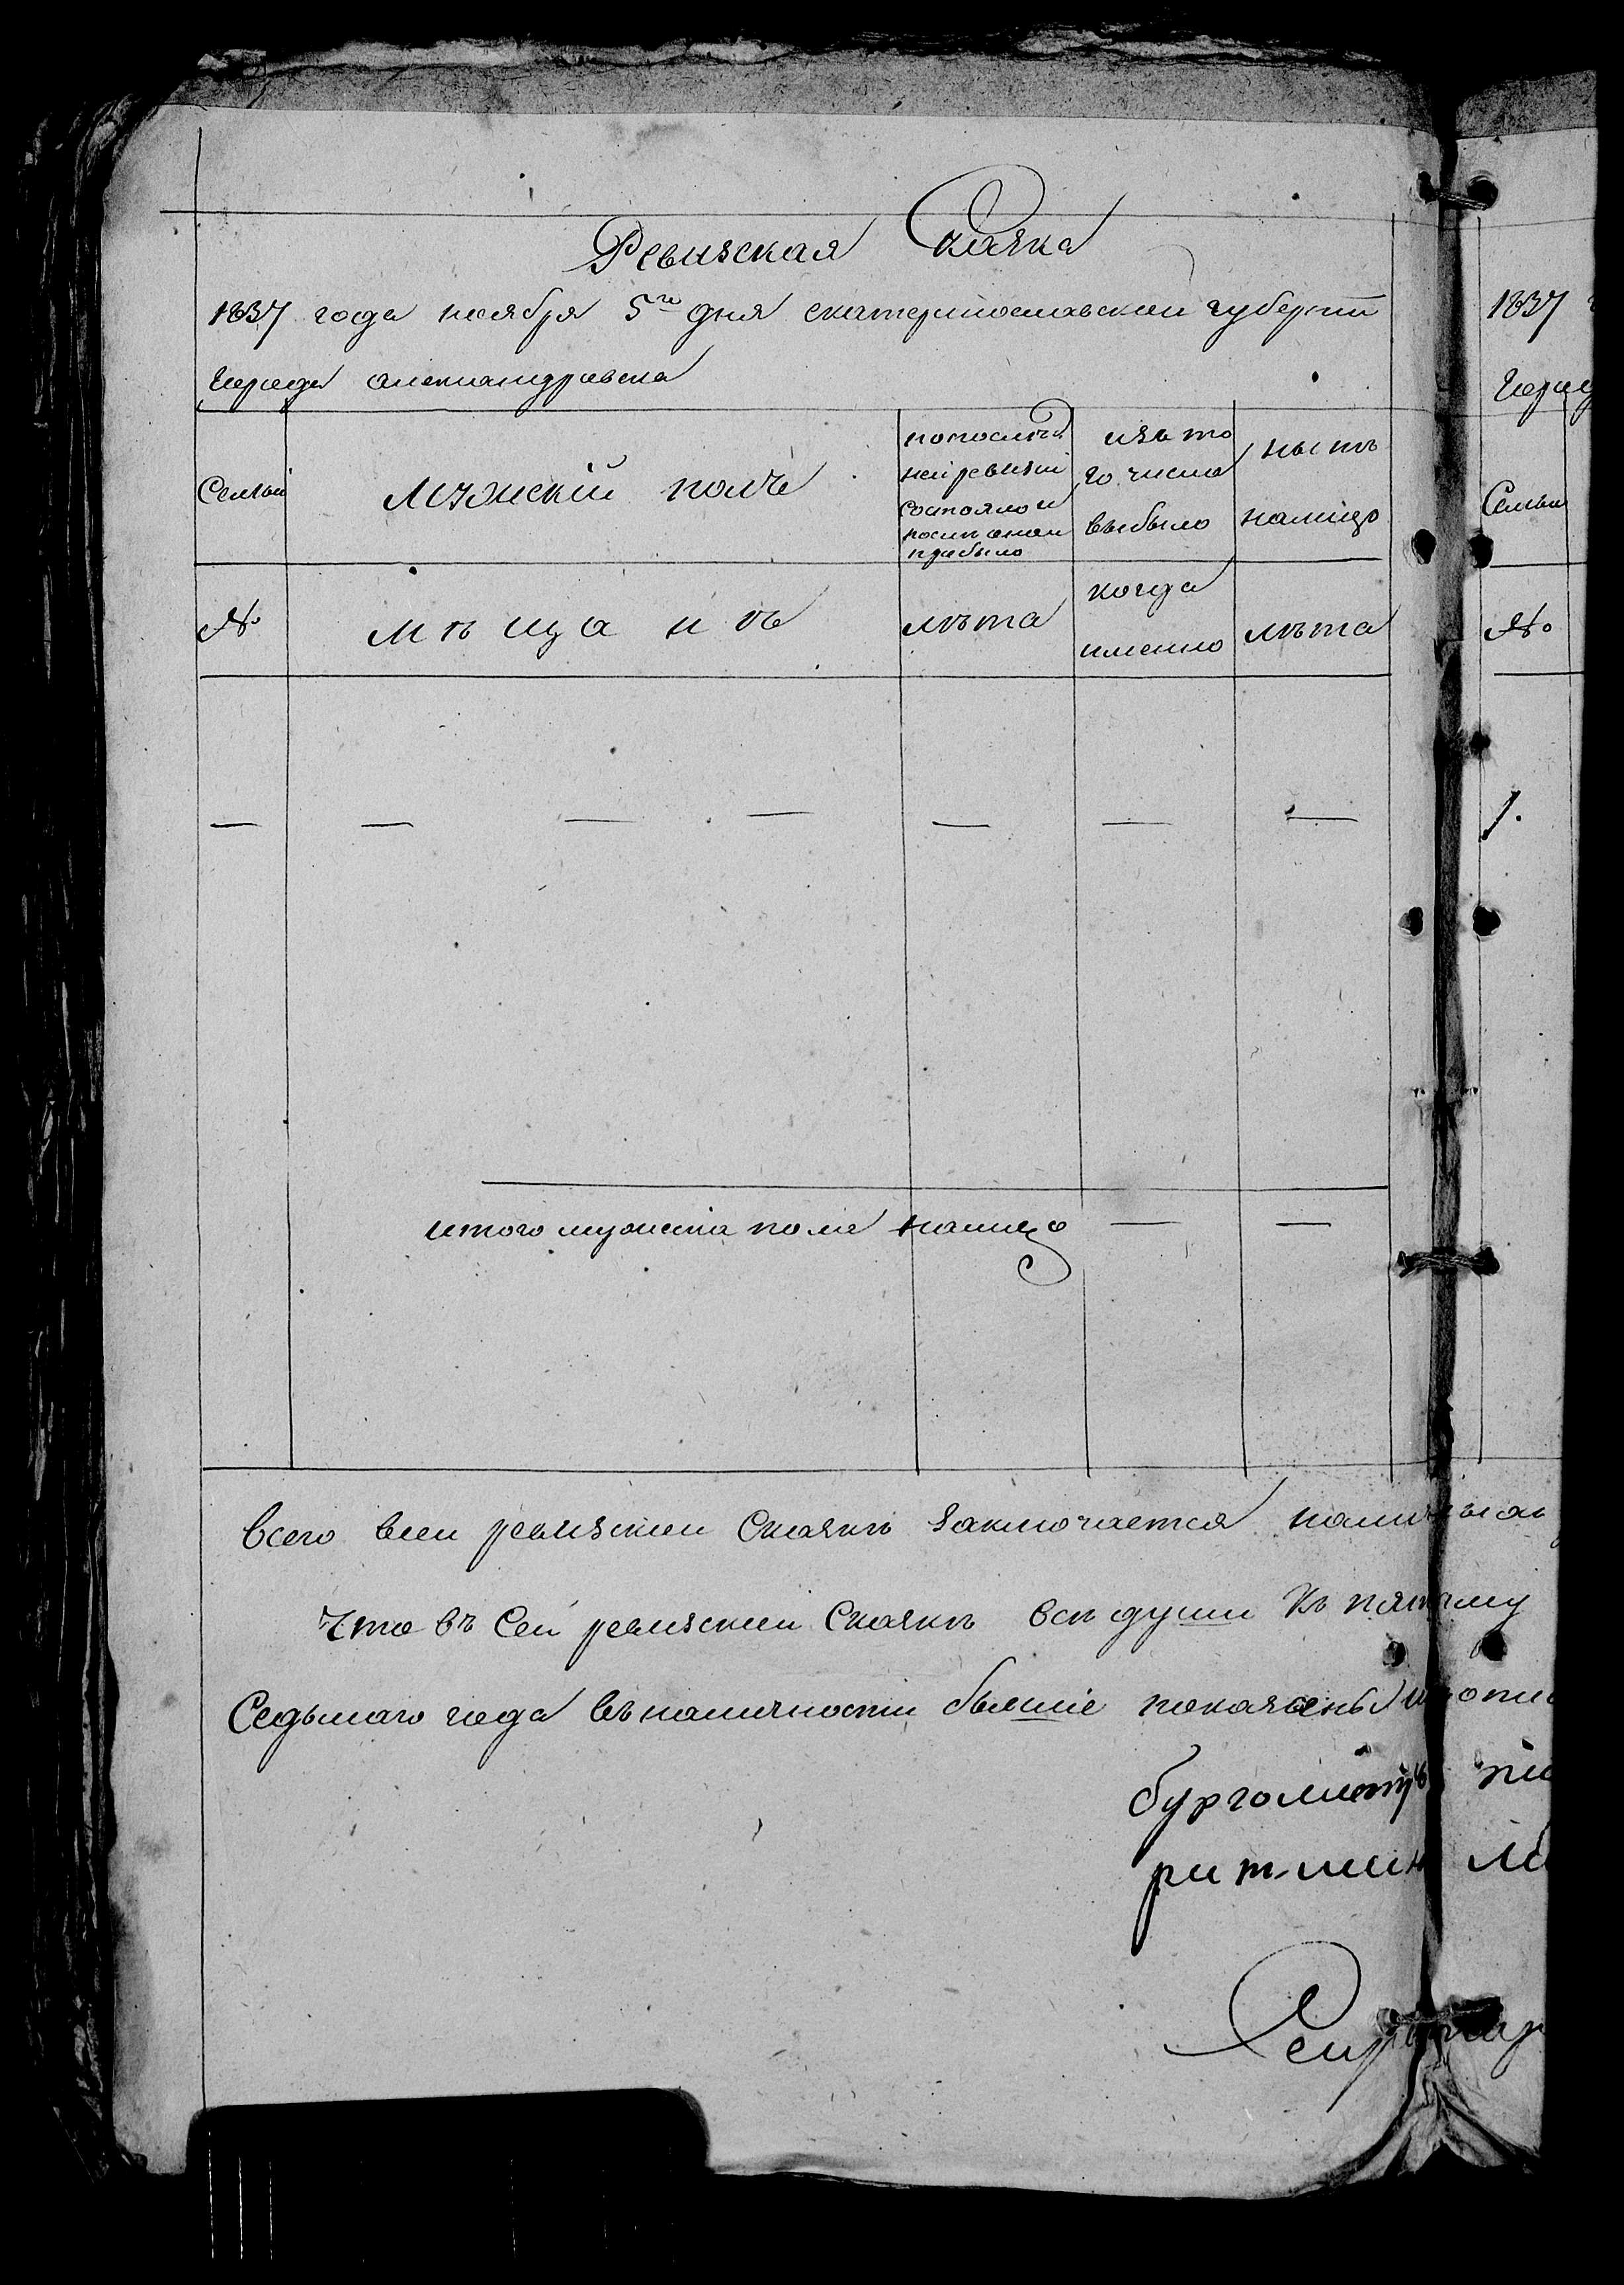 Ревизская Сказка
1837 года ноября 5го дня екатеринославской губернїи
города александровска
Семьи
Мужскїй полъ
по послѣд
ней ревизїи
состояло и
послѣ оной
прибыло
изъ то
го числа
выбыло
нынѣ
налицо
№
мѣщанъ
лѣта
когда
именно
лѣта
— — — — — — —
итого мужеска пола налицо — —
всего всей ревизской Сказкѣ заключается наличныхъ
Что въ Сей ревизской Сказкѣ всѣ души къ пятому
Седьмаго года въ наличности бывшїе показаны и
бургомистръ
ратман
1837
Семьи
№
1.